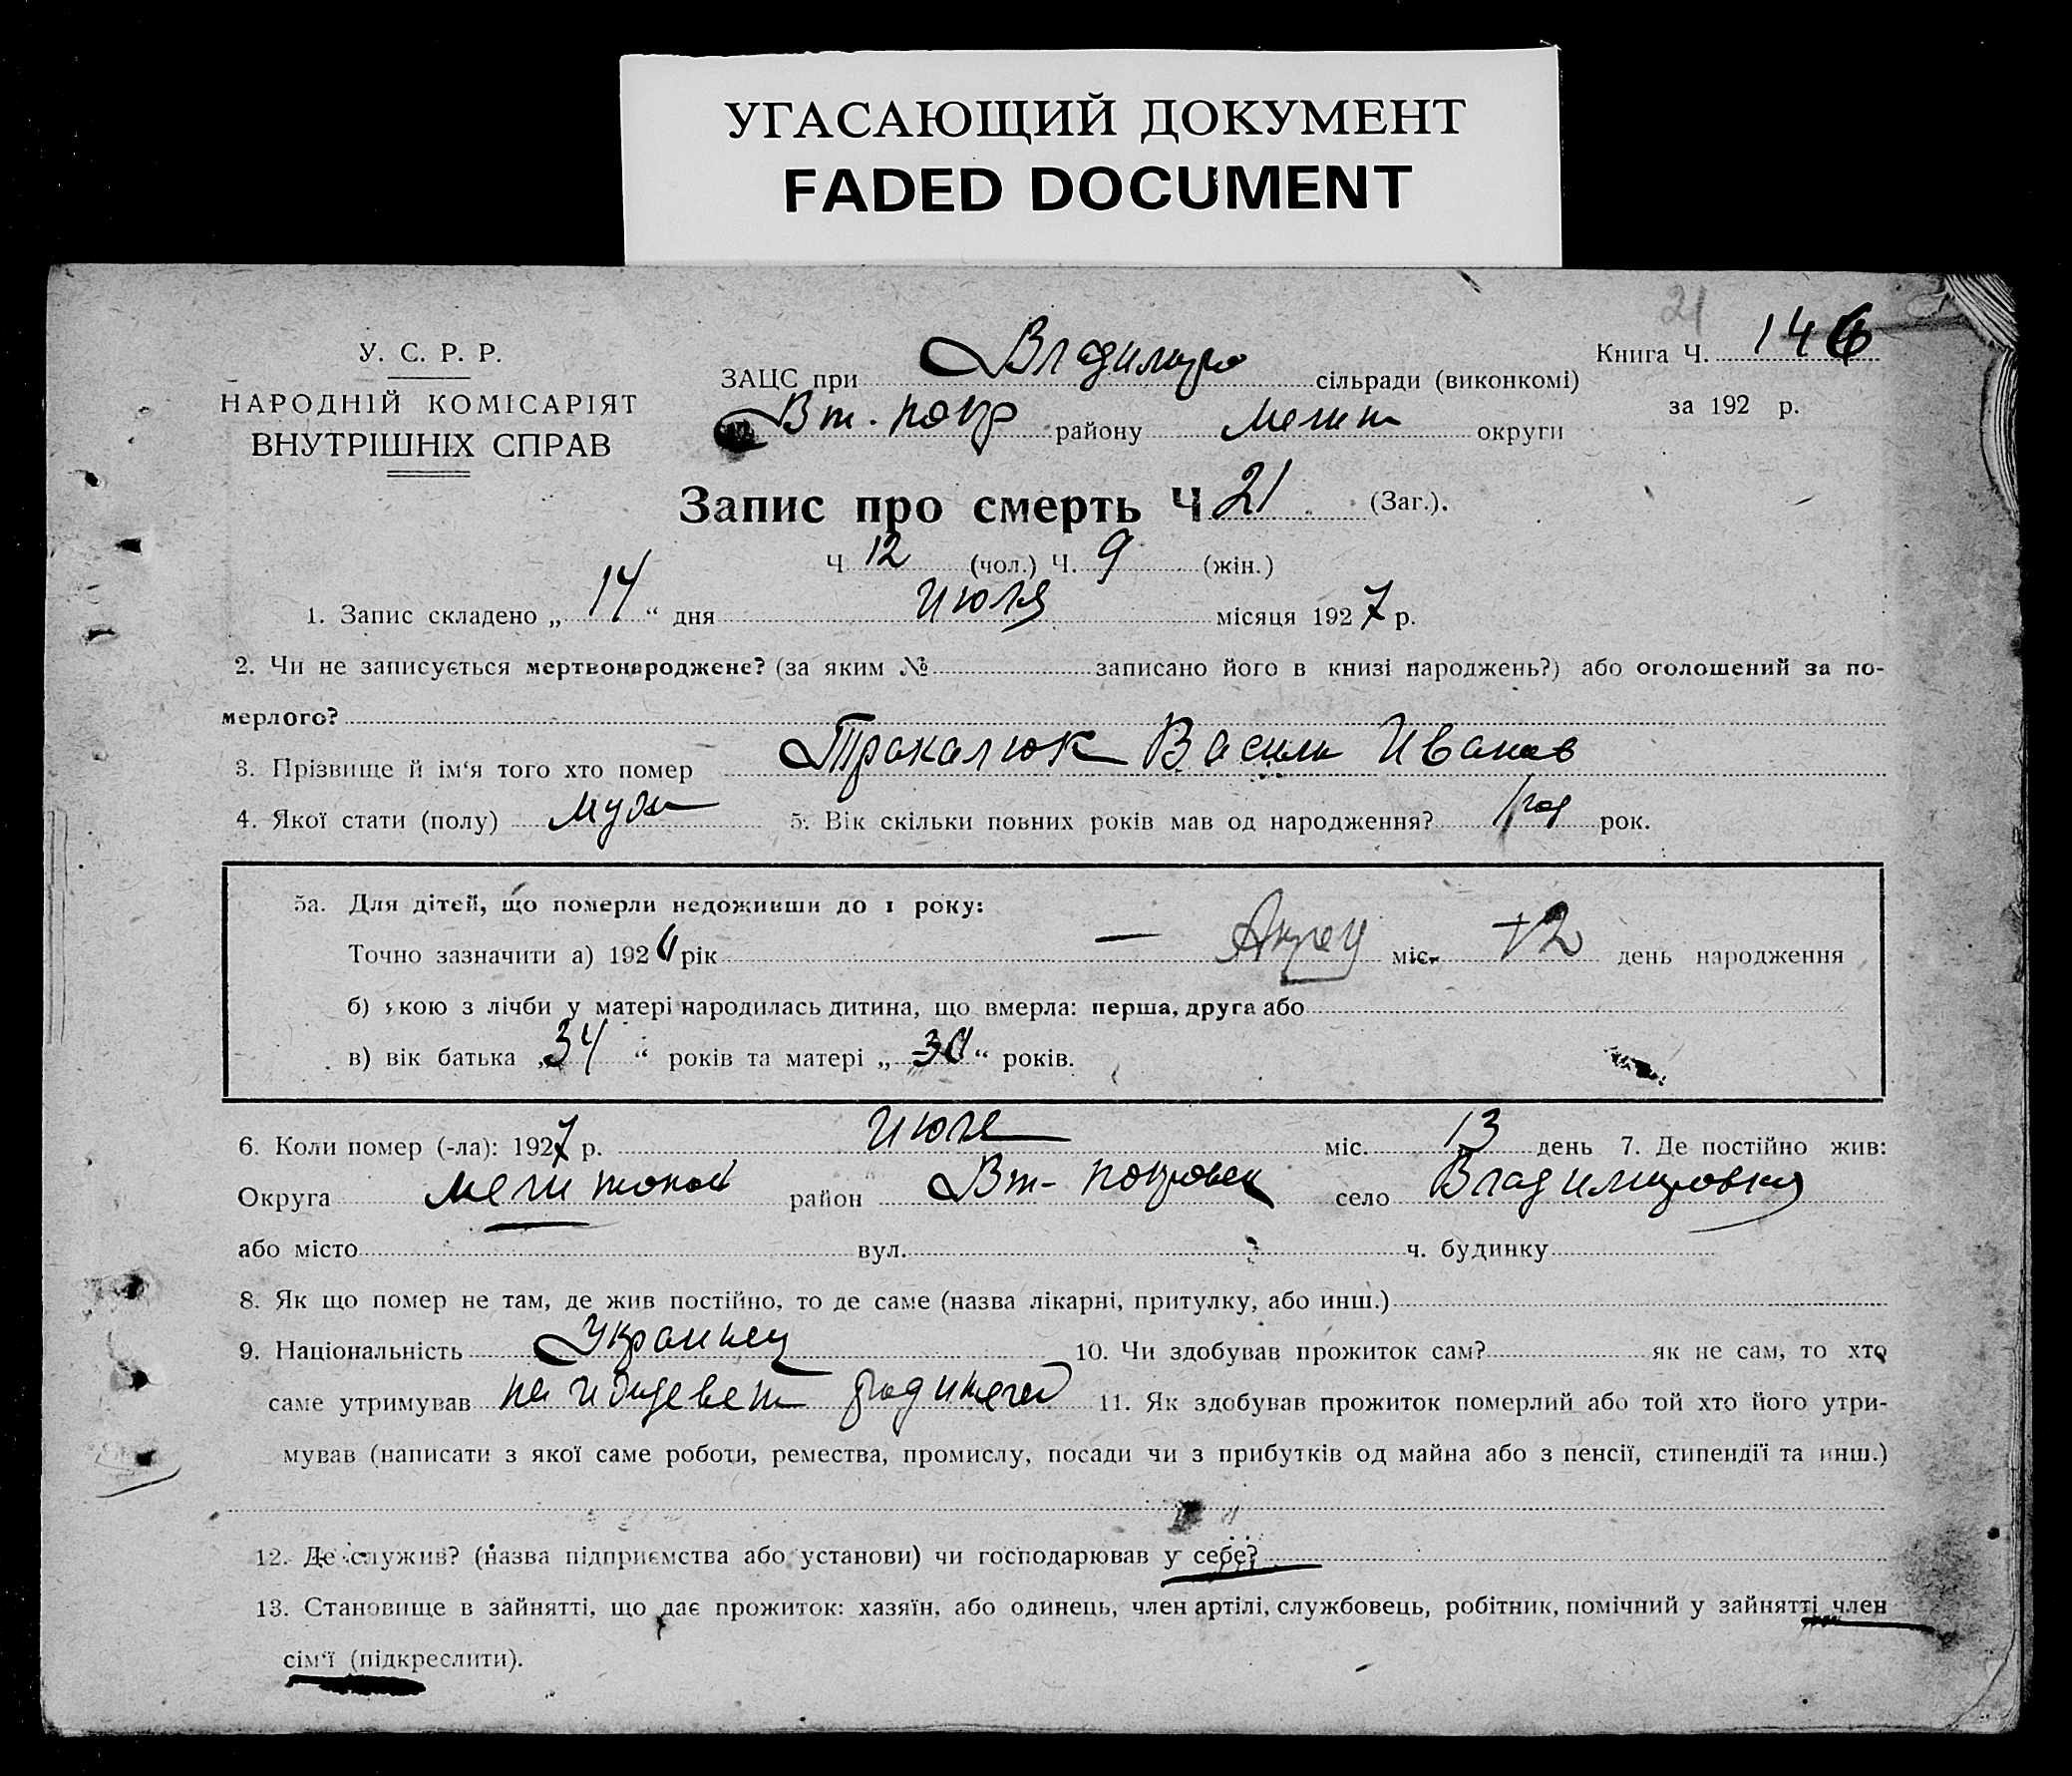 УГАСАЮЩИЙ ДОКУМЕНТ
FADED DOCUMENT
21
У. С. Р. Р.
НАРОДНІЙ КОМІСАРІЯТ
ВНУТРІШНІХ СПРАВ
Книга Ч. 146
за 192 р.
ЗАЦС при Владимиро сільради (виконкомі)
Вт. покр району Мелит округи
Запис про смерть Ч 21 (Заг.).
Ч 12 (чол.) Ч. 9 (жін.)
1. Запис складено „ 14 “ дня июля місяця 1927 р.
2. Чи не записується мертвонароджене? (за яким № записано його в книзі народжень?) або оголошений за по-
мерлого?
3. Прізвище й ім‘я того хто помер Тракалюк Васили Иванов
4. Якої стати (полу) муж 5. Вік скільки повних років мав од народження? 1 год рок.
5а. Для дітей, що померли недоживши до 1 року:
Точно зазначити а) 192 рік — міс. 12 день народження
б) кою з лічби у матері народилась дитина, що вмерла: перша, друга або
в) вік батька „ 34 “ років та матері „ “ років.
6. Коли помер (-ла): 1927 р. июля міс. 13 день 7. Де постійно жив:
Округа Мелитопол район Вт- покровск село Владимировка
або місто вул. ч. будинку
8. Як що помер не там, де жив постійно, то де саме (назва лікарні, притулку, або инш.)
9. Національність Украинец 10. Чи здобував прожиток сам? як не сам, то хто
саме утримував на иждевен родителей 11. Як здобував прожиток померлий або той хто його утри-
мував (написати з якої саме роботи, ремества, промислу, посади чи з прибутків од майна або з пенсії, стипендії та инш.)
12. Де служив? (назва підприємства або установи) чи господарював у себе?
13. Становище в зайнятті, що дає прожиток: хазяїн, або одинець, член артілі, службовець, робітник, помічний у зайнятті член
сім‘ї (підкреслити).